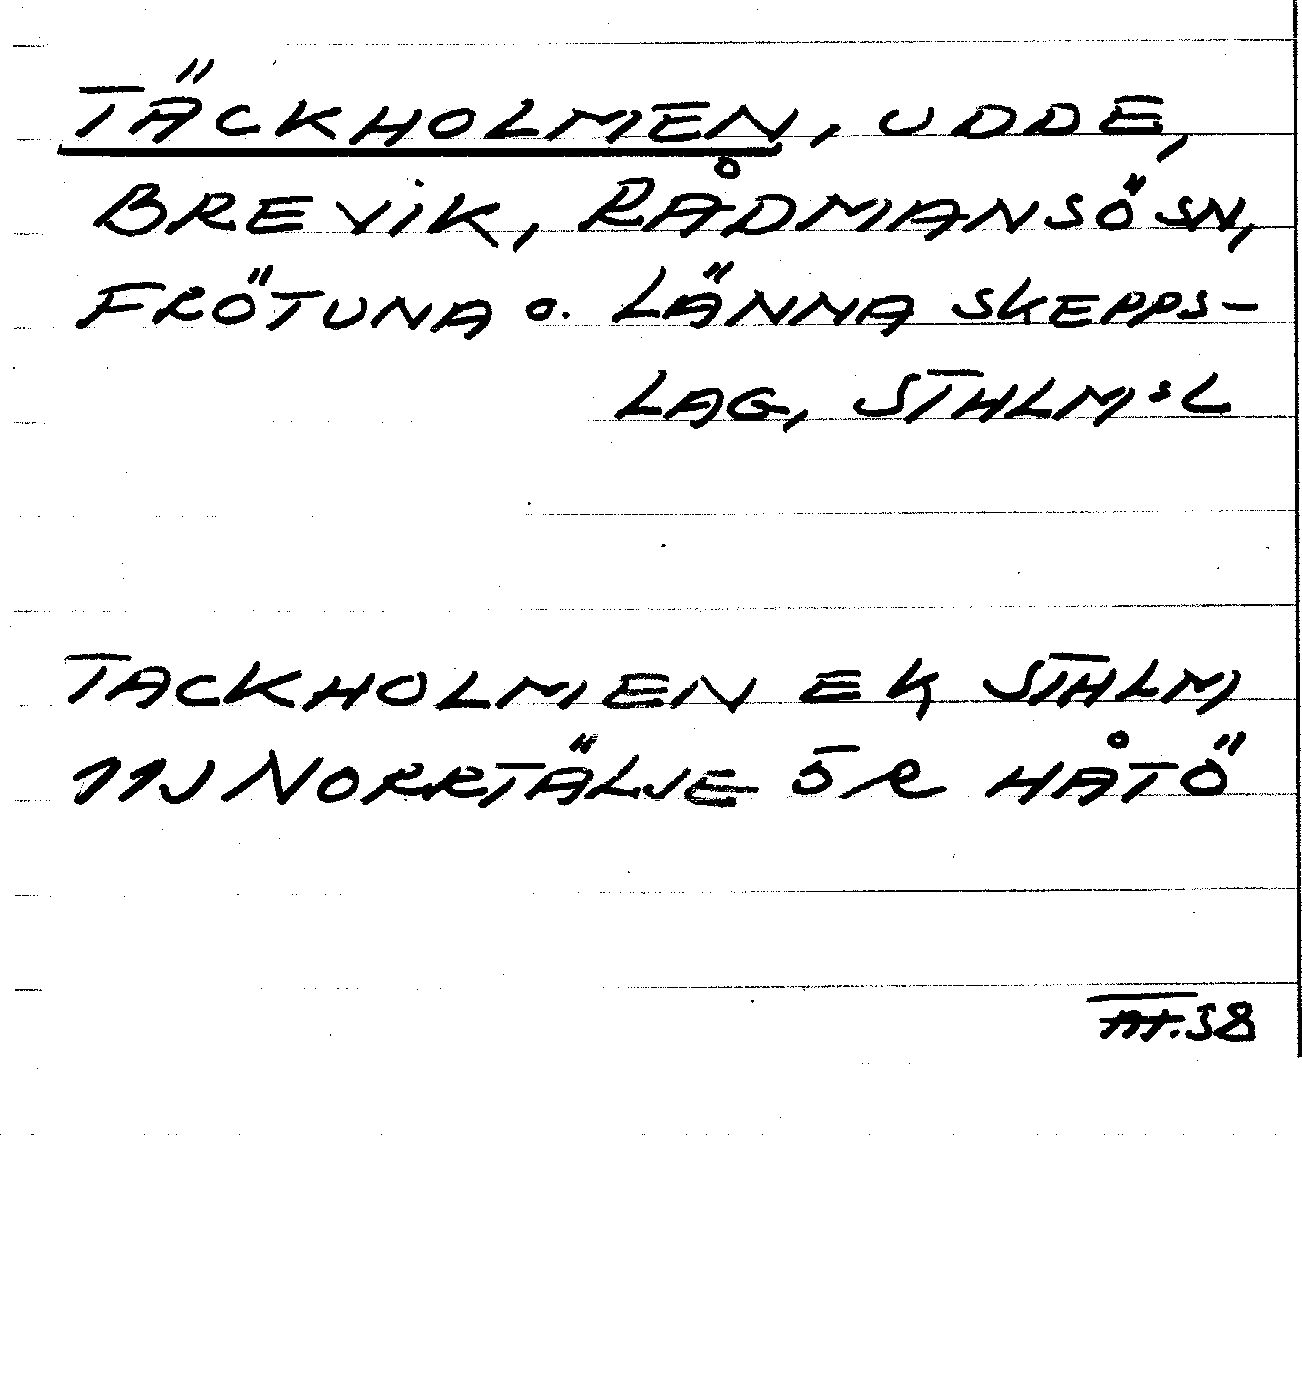 TÄCKHOLMEN, UDDE,
BREVIK, RÅDMANSÖ SN,
FRÖTUNA o. LÄNNA SKEPPS-
LAG, STHLMsL
TACKHOLMEN EK STHLM
11J NORRTÄLJE ÖR HÅTÖ